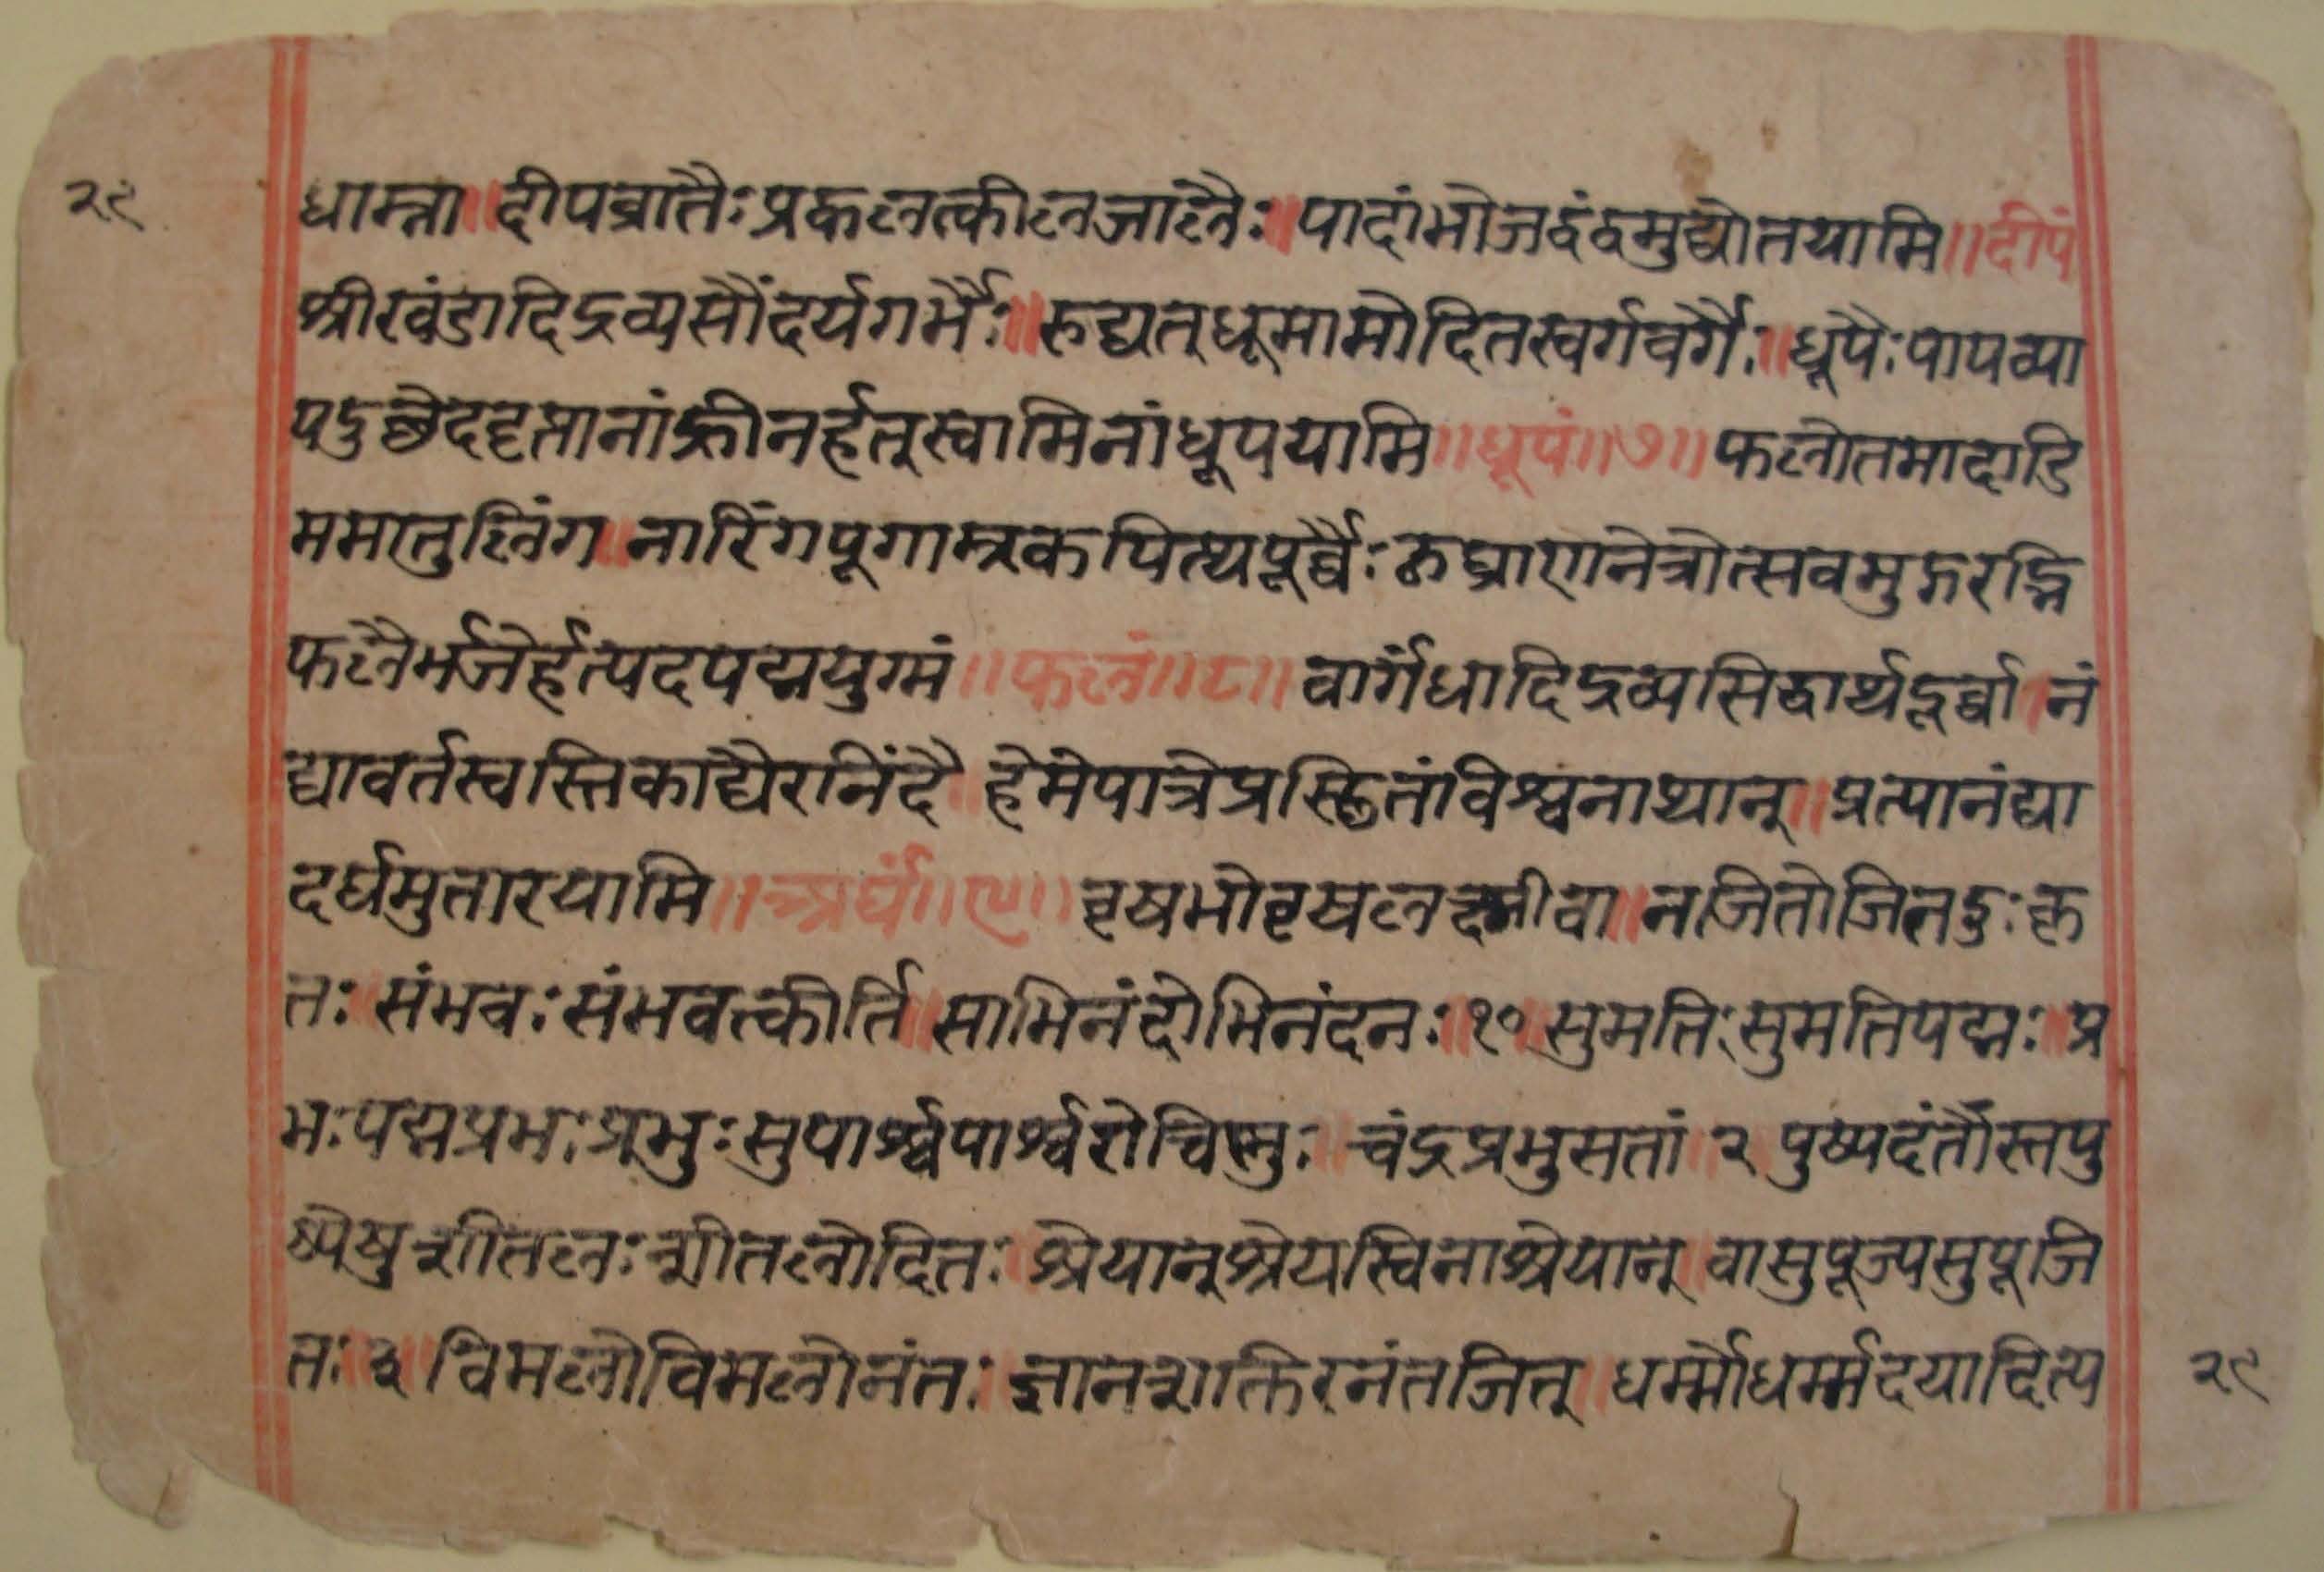 २९ धाम्ना ॥ दीपव्रातैः प्रकलत्कीलजालैः ॥ पादांभोजद्वंद्वमुद्योतयामि ॥ दीपं
श्रीखंडादिद्रव्यसौंदर्यगर्भैः ॥ रुद्यत्धूमामोदितस्वर्गवर्गैः ॥ धूपैः पापव्या
पदुछेददृप्तानांह्रीनर्हत्स्वामिनांधूपयामि ॥ धूपं ॥ ७ ॥ फलोतमादाडि
ममातुलिंग ॥ नारिंगपूगाम्रकपित्यपूर्वैः घ्राणनेत्रोत्सवमु
फलैर्भजेर्हत्पदपद्मयुग्मं ॥ फलं ॥ ८ ॥ वार्गंधादिद्रव्यसिद्धार्थदूर्वा । नं
द्यावर्तस्वस्तिकाद्यैरनिंदै हेमेपात्रेप्रस्छितांविश्वनाथान् ॥ प्रत्पानंद्या
दर्घमुतारयामि ॥ अर्घं ॥ ९ ॥ वृषभोवृषलक्ष्मीवा ॥ नजितोजितदुःकृ
तः संभवः संभवत्कीर्ति ॥ साभिनंदोभिनंदनः ॥ १० सुमतिः सुमतिपद्मः ॥ प्र
भः पद्मप्रभः प्रभुः सुपार्श्वपार्श्वरोचिस्नुः चंद्रप्रभुसतां २ पुष्पदंतौंस्तपु
ष्पेषु शीतलः शीतलोदितः श्रेयान्श्रेयस्विनाश्रेयान् वासुपूज्यसुपूजि
तः ३ ॥ विमलोविमलोनंतः ज्ञानशक्तिरनंतजित् ॥ धर्म्मोधर्म्मदयादित्य २९